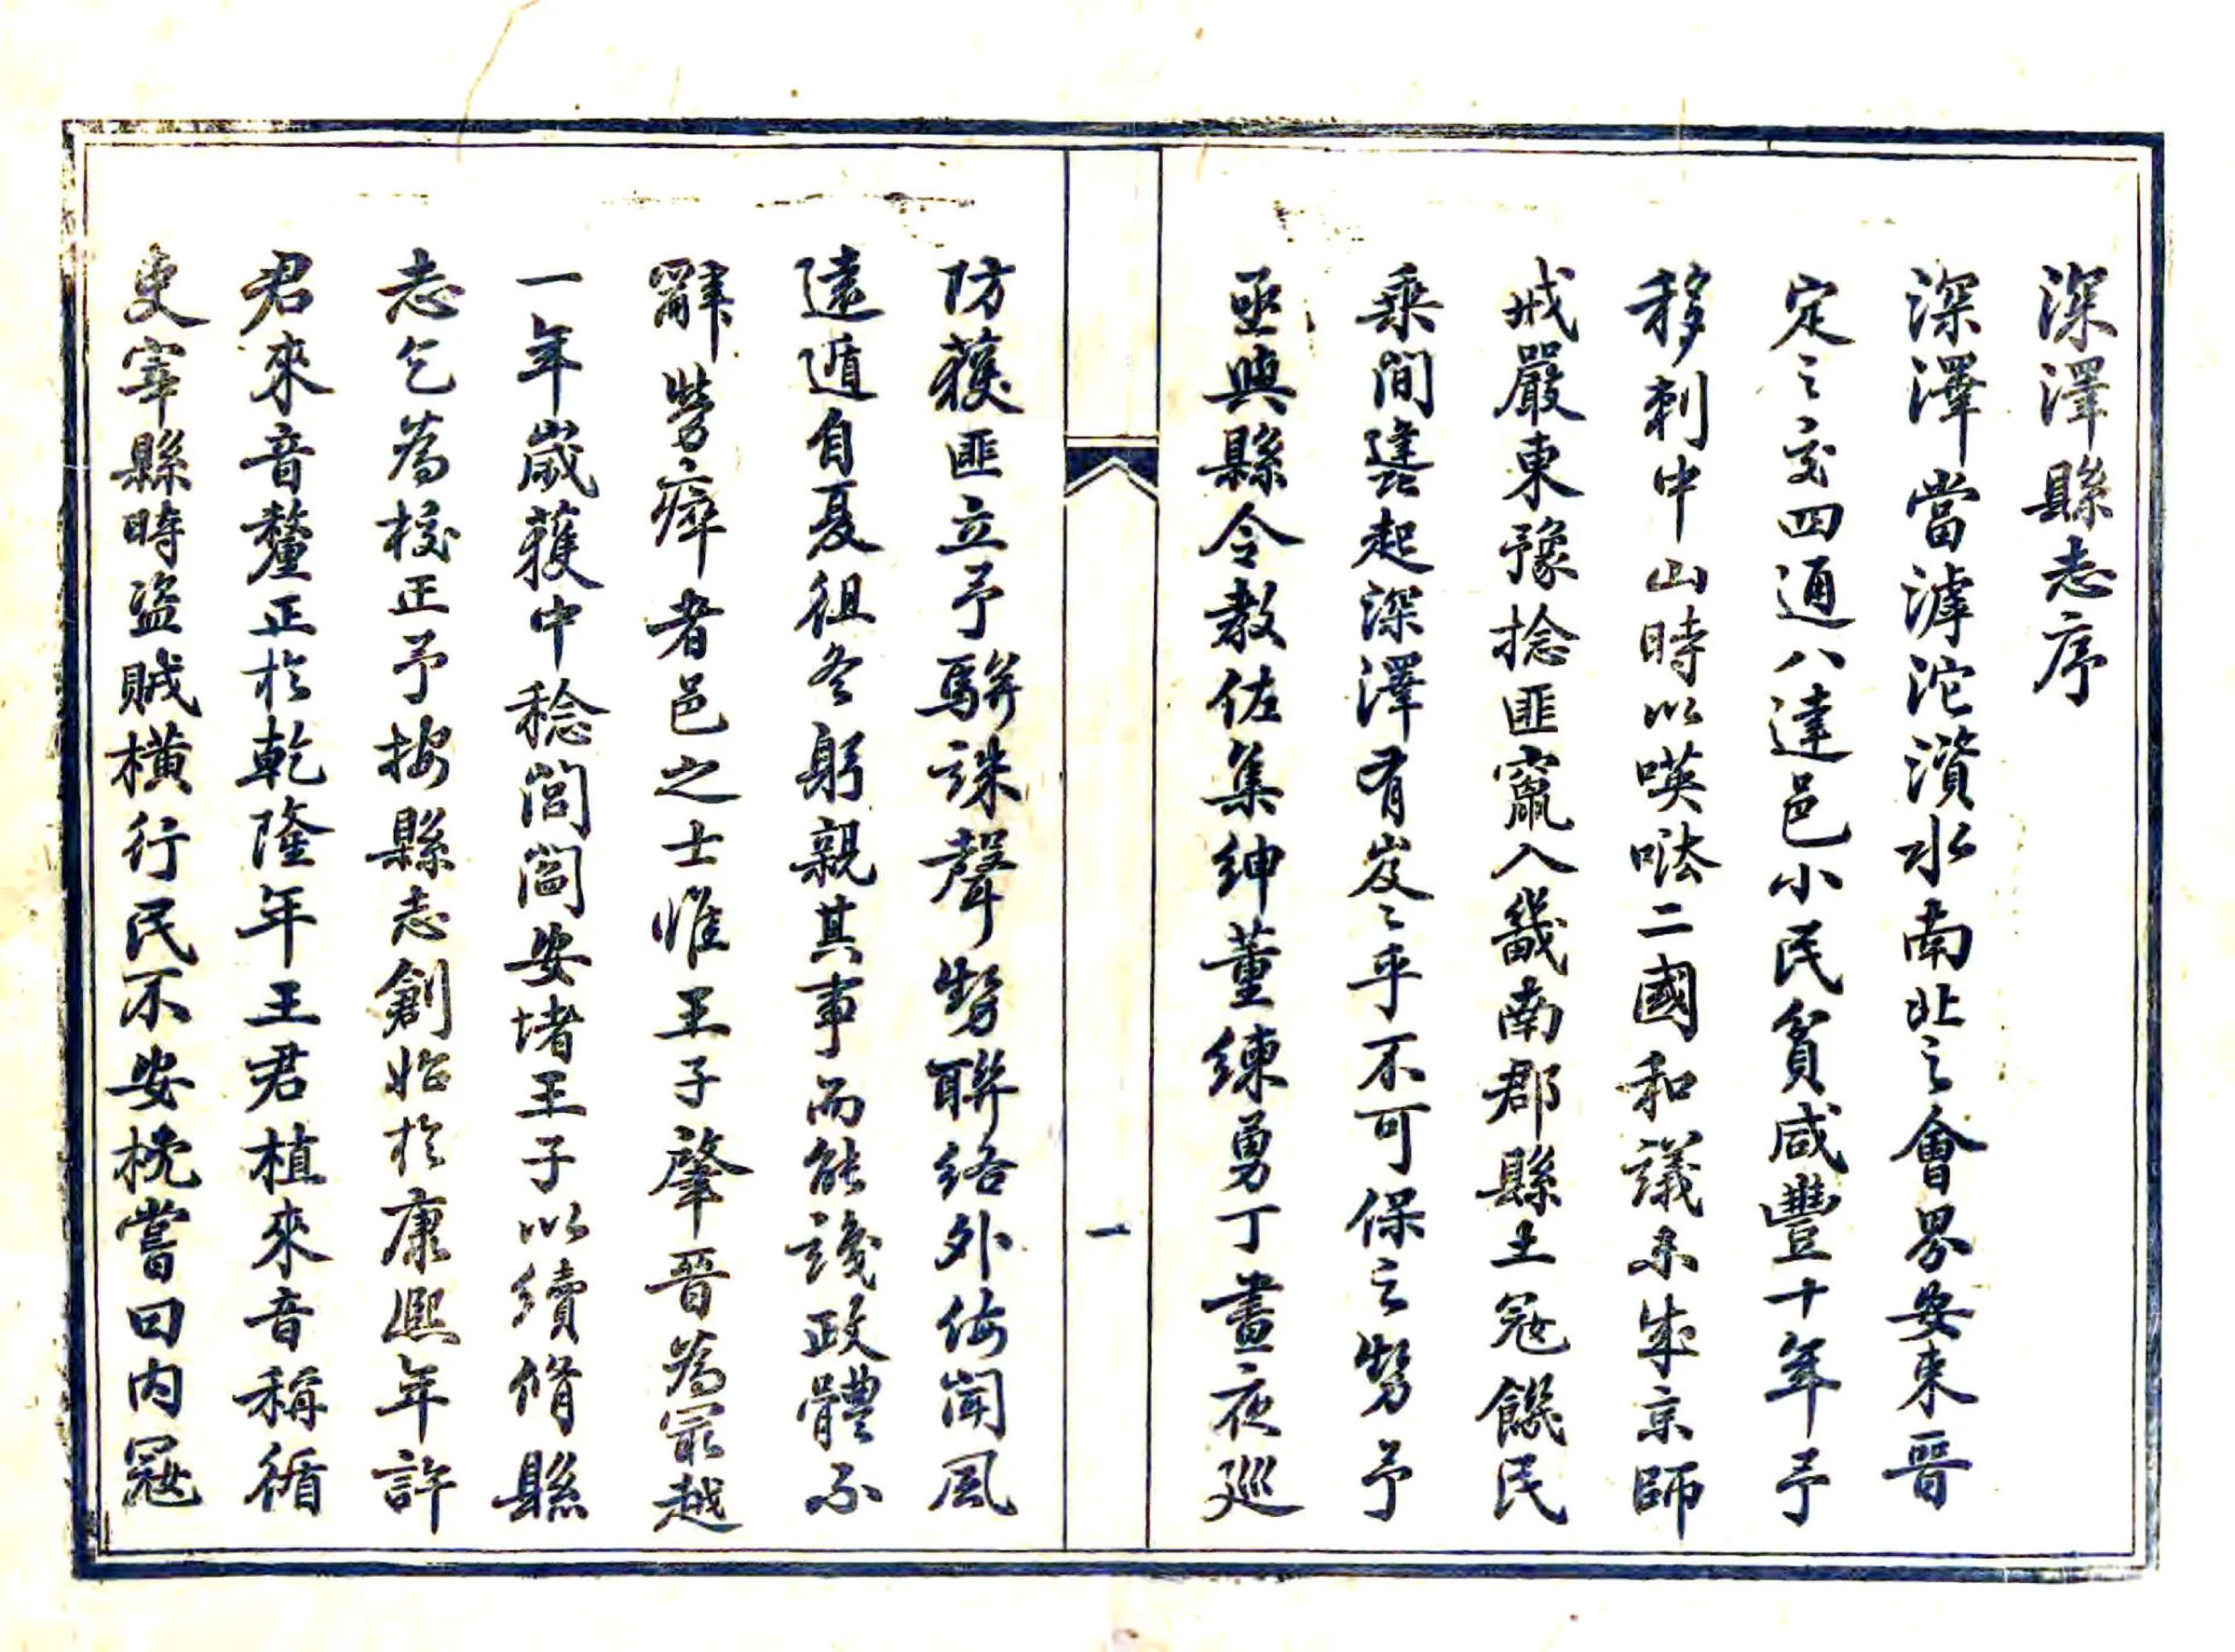 深澤縣志序
深澤當滹沱濱水南北之會界安束晉
定之交四通八達邑小民貧咸豐十年予
移刺中山時以暎㗳二國和議未成京師
戒嚴東豫捻匪竄入畿南郡縣土冦饑民
乗間遘起深澤有岌〻乎不可保之勢予
亟與縣令教佐集紳董練勇丁晝夜廵
一
防獲匪立予駢誅聲勢聯絡外侮聞風
遠遁自夏徂冬躬親其事而能識政體不
辭勞瘁者邑之士惟王子肇晉為冣越
一年嵗獲中稔閭閻安堵王子以續脩縣
志乞為校正予按縣志創始於康熙年許
君來音釐正於乾隆年王君植來音稱循
吏宰縣時盜賊橫行民不安枕嘗曰内冦